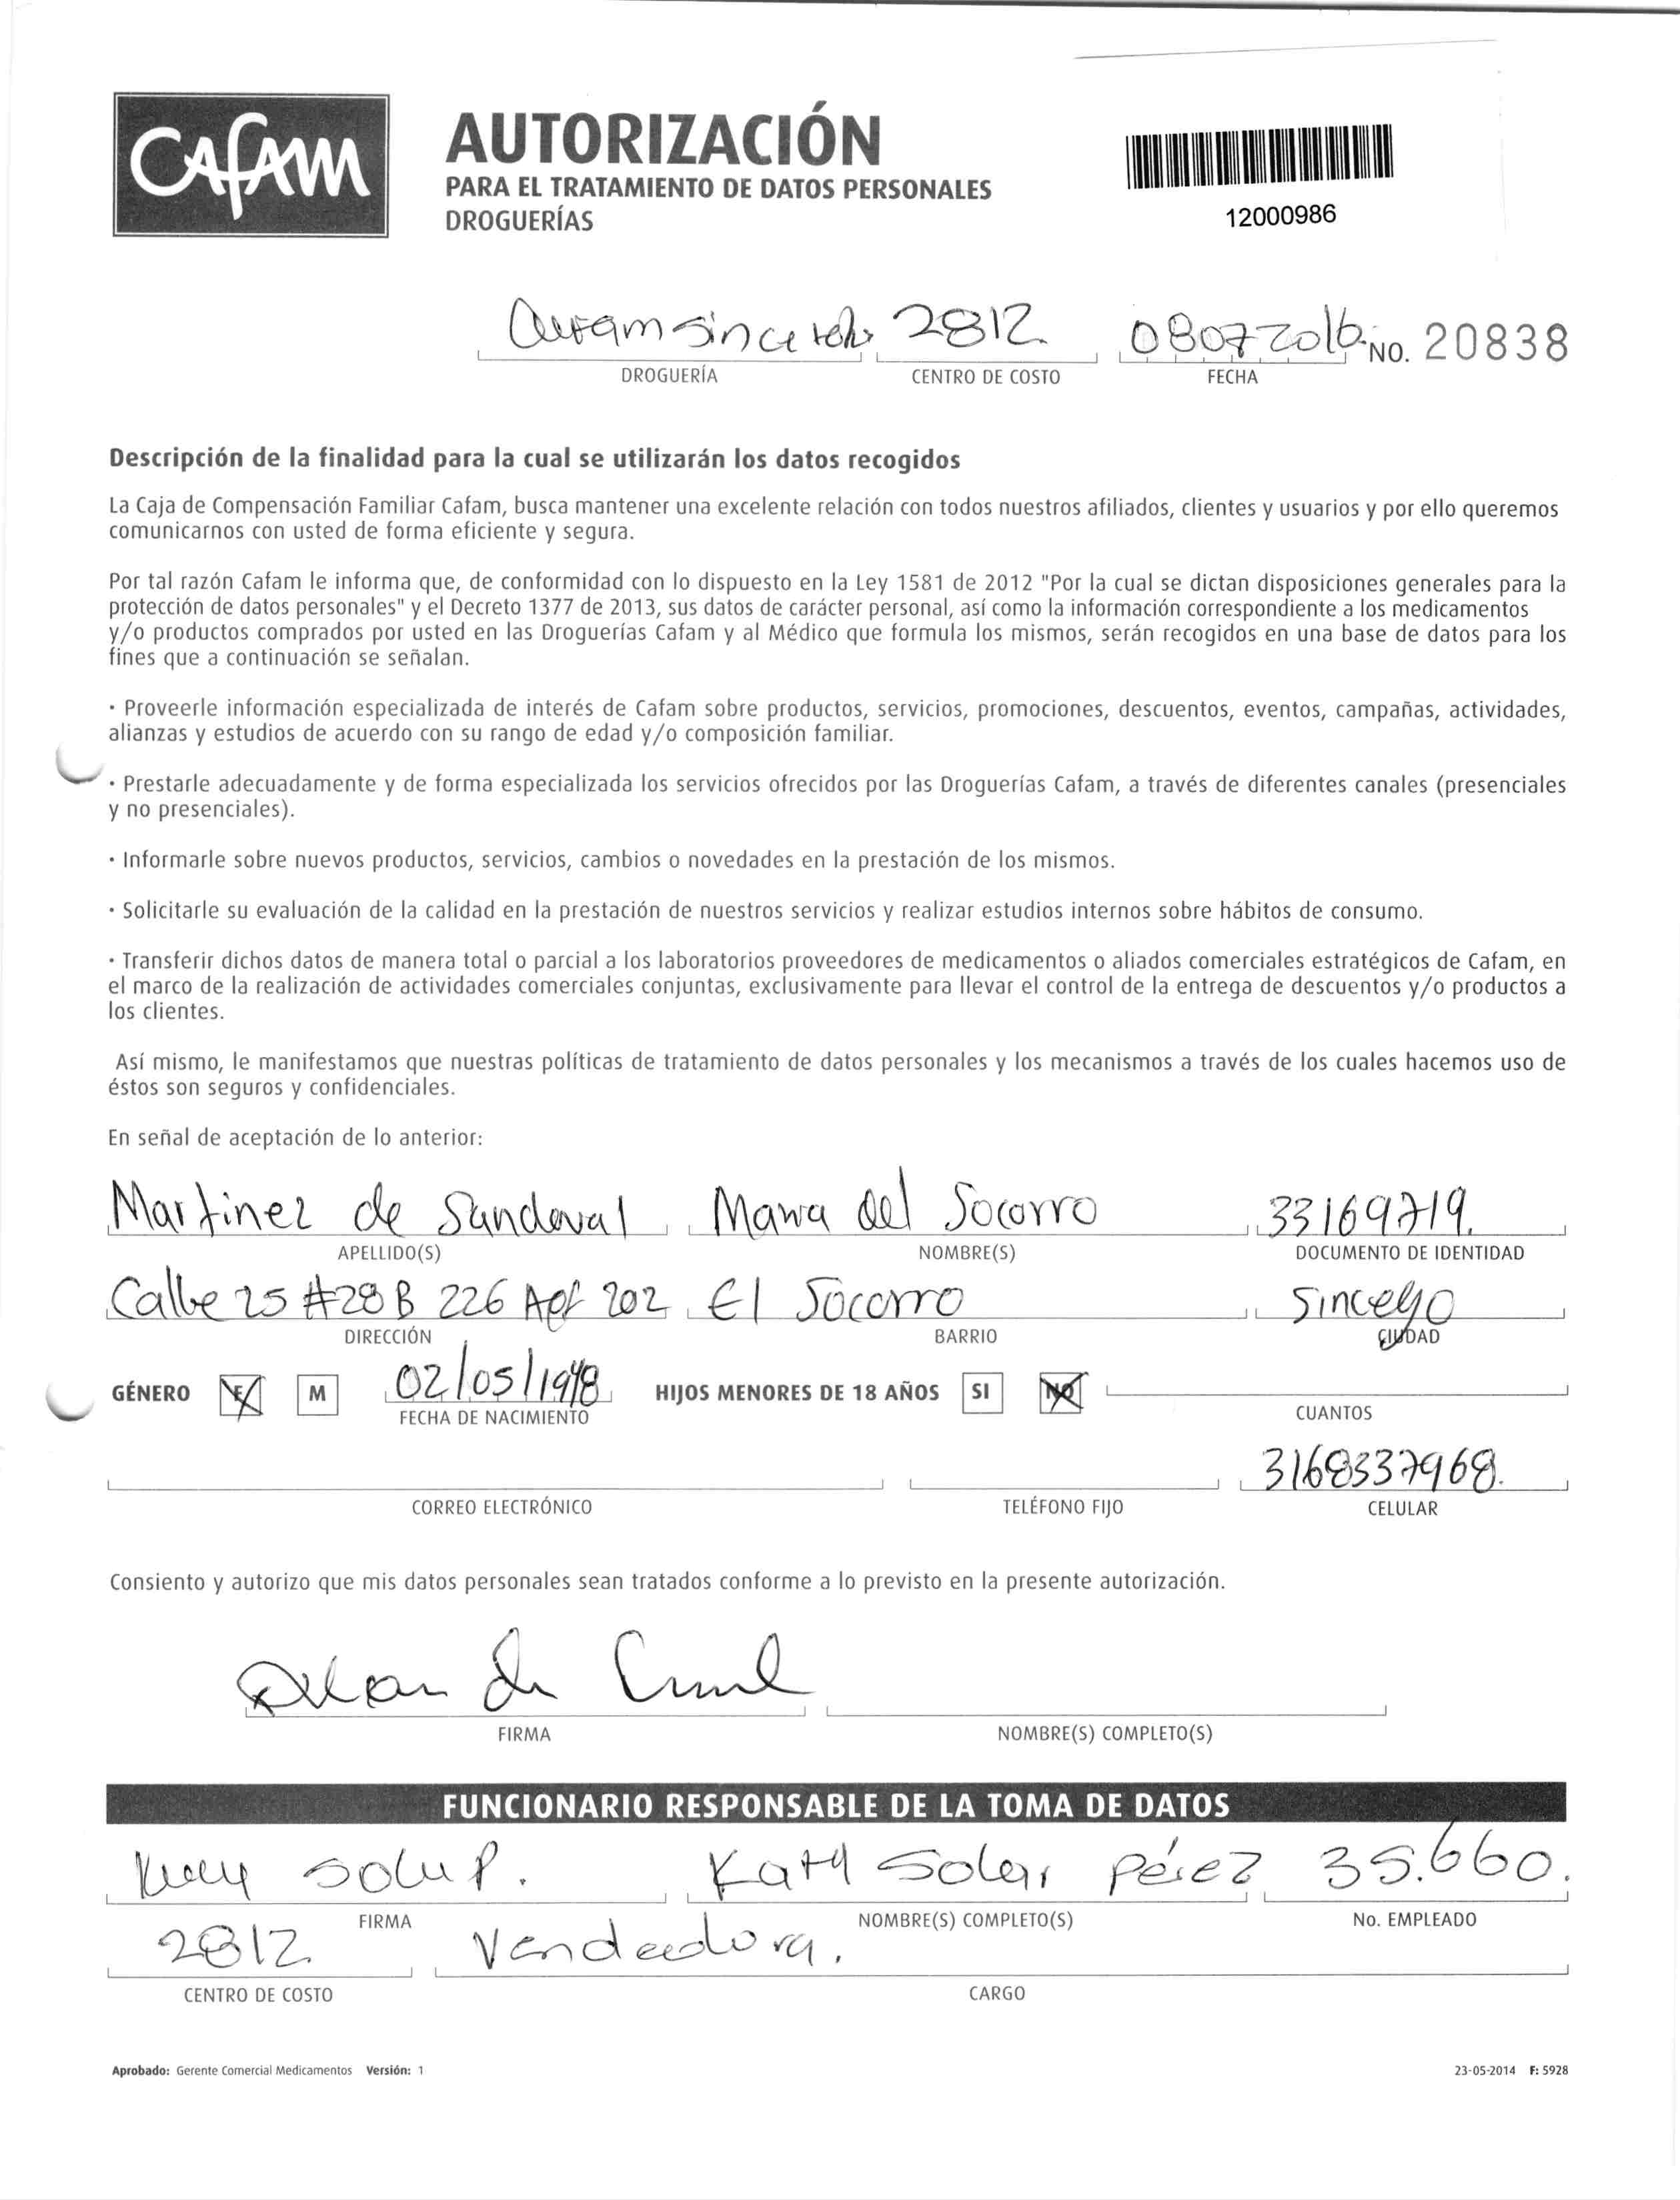 CAFAM
AUTORIZACIÓN
PARA EL TRATAMIENTO DE DATOS PERSONALES
DROGUERÍAS
12000986
2812. 08072016. NO. 20838
DROGUERÍA CENTRO DE COSTO FECHA
Descripción de la finalidad para la cual se utilizarán los datos recogidos
La Caja de Compensación Familiar Cafam, busca mantener una excelente relación con todos nuestros afiliados, clientes y usuarios y por ello queremos
comunicarnos con usted de forma eficiente y segura.
Por tal razón Cafam le informa que, de conformidad con lo dispuesto en la Ley 1581 de 2012 "Por la cual se dictan disposiciones generales para la
protección de datos personales" y el Decreto 1377 de 2013, sus datos de carácter personal, así como la información correspondiente a los medicamentos
y/o productos comprados por usted en las Droguerías Cafam y al Médico que formula los mismos, serán recogidos en una base de datos para los
fines que a continuación se señalan.
· Proveerle información especializada de interés de Cafam sobre productos, servicios, promociones, descuentos, eventos, campañas, actividades,
alianzas y estudios de acuerdo con su rango de edad y/o composición familiar.
· Prestarle adecuadamente y de forma especializada los servicios ofrecidos por las Droguerías Cafam, a través de diferentes canales (presenciales
y no presenciales).
· Informarle sobre nuevos productos, servicios, cambios o novedades en la prestación de los mismos.
· Solicitarle su evaluación de la calidad en la prestación de nuestros servicios y realizar estudios internos sobre hábitos de consumo.
· Transferir dichos datos de manera total o parcial a los laboratorios proveedores de medicamentos o aliados comerciales estratégicos de Cafam, en
el marco de la realización de actividades comerciales conjuntas, exclusivamente para llevar el control de la entrega de descuentos y/o productos a
los clientes.
Así mismo, le manifestamos que nuestras políticas de tratamiento de datos personales y los mecanismos a través de los cuales hacemos uso de
éstos son seguros y confidenciales.
En señal de aceptación de lo anterior:
Martinez de Sandoval Maria del Socorro 33169719.
APELLIDO(S) NOMBRE(S) DOCUMENTO DE IDENTIDAD
Calle 25 #28 B 226 Apt 202 El Socorro Sincelejo
DIRECCIÓN BARRIO CIUDAD
GÉNERO F M 02/05/1948 HIJOS MENORES DE 18 AÑOS SI NO
FECHA DE NACIMIENTO CUANTOS
3168337968.
CORREO ELECTRÓNICO TELÉFONO FIJO CELULAR
Consiento y autorizo que mis datos personales sean tratados conforme a lo previsto en la presente autorización.
FIRMA NOMBRE(S) COMPLETO(S)
FUNCIONARIO RESPONSABLE DE LA TOMA DE DATOS
Katy Solar Pérez 35.660.
FIRMA NOMBRE(S) COMPLETO(S) No. EMPLEADO
2812. Vendedora.
CENTRO DE COSTO CARGO
Aprobado: Gerente Comercial Medicamentos Versión: 1 23-05-2014 F: 5928